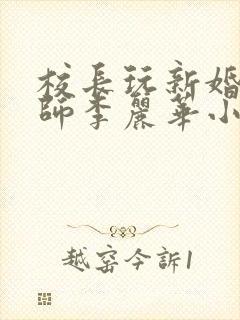 校長玩新婚
師李麗華小
越窑今訴1